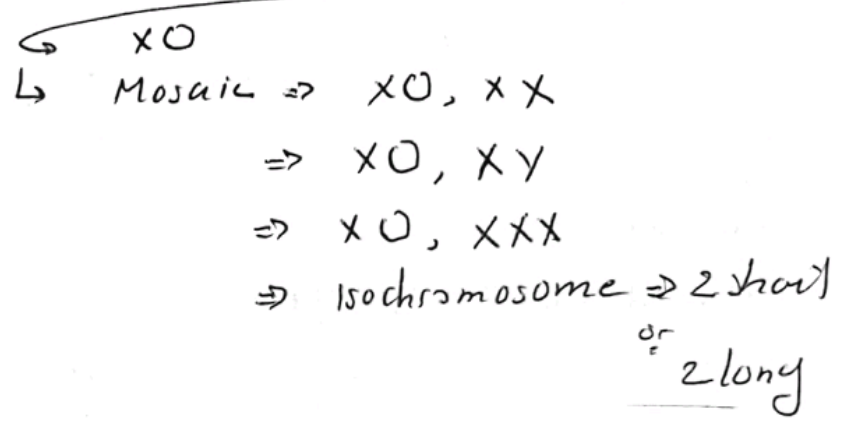 ↪ XO
↳ Mosaic ⇒ XO, XX
⇒ XO, XY
⇒ XO, XXX
⇒ Isochromosome ⇒ 2 short
or
2 long